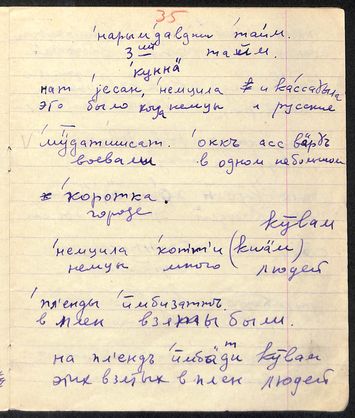 35
ʹнарымʹдавдыи таим.
3ий таём.
ʹкуннӓ
нат ʹjесан, ʹнемцила и кассабыла
это было когда немцы и русские
ʹмӱдатшисат. ʹоккъ асс вӓргъ
воевали в одном небольшом
ʹкоротка.
городе
кӯвам
ʹнемцила ʹкотти (киӓм)
немцы много людей
ʹпленды ʹимбизатнъ
в плен взяты были.
на плʹендъ ʹимбӓди кӯвам
этих взятых в плен людей